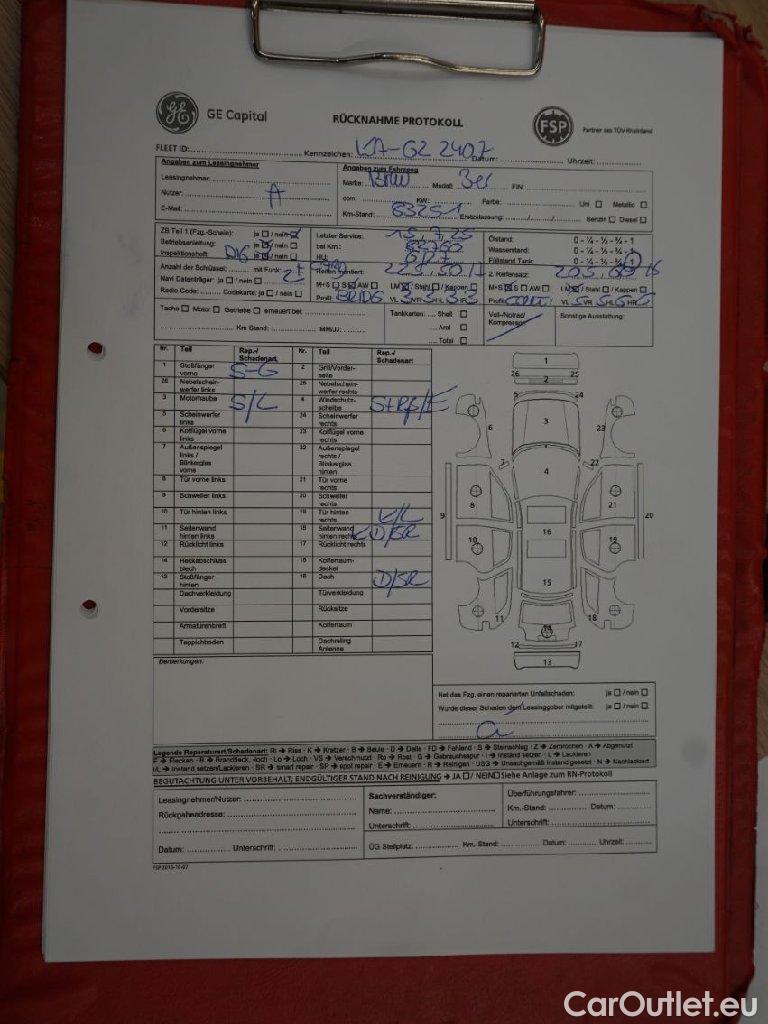 GE Capital
RÜCKNAHME PROTOKOLL
FSP Partner des TÜV Rheinland
FLEET ID: Kennzeichen: KA-GZ 2407 Datum: Uhrzeit:
Angaben zum Leasingnehmer
Leasingnehmer:
Nutzer: A
E-Mail:
Angaben zum Fahrzeug
Marke: BMW Modell: 3er FIN:
ccm: KW: Farbe: Uni Metallic
Km-Stand: 83251 Erstzulassung: Benzin Diesel
ZB Teil 1 (Fzg.-Schein): ja / nein
Betriebsanleitung: ja / nein
Inspektionsheft DIG ja / nein
Anzahl der Schlüssel: mit Funk: 2
Navi Datenträger: ja / nein
Radio Code: Codekarte: ja / nein
Letzter Service:
bei Km:
HU:
Reifen montiert: 225/50.17
M+S S AW LM Stahl / Kappen
Profil: VL VR HL HR
Ölstand: 0 - ¼ - ½ - ¾ - 1
Wasserstand: 0 - ¼ - ½ - ¾ - 1
Füllstand Tank: 0 - ¼ - ½ - ¾ - 1
2. Reifensatz:
M+S S AW LM Stahl / Kappen
Profil: VL VR HL HR
Tacho Motor Getriebe erneuert bei
Km Stand: MM/JJ:
Tankkarten: Shell
Aral
Total
Voll-/Notrad/
Kompressor
Sonstige Ausstattung:
Nr. Teil Rep./ Schadenart. Nr. Teil Rep./ Schadenart.
1 Stoßfänger vorne S-G 2 Grill/Vorderseite
25 Nebelscheinwerfer links 26 Nebelscheinwerfer rechts
3 Motorhaube S/L 4 Windschutzscheibe
5 Scheinwerfer links 24 Scheinwerfer rechts
6 Kotflügel vorne links 23 Kotflügel vorne rechts
7 Außenspiegel links / Blinkerglas vorne 22 Außenspiegel rechts / Blinkerglas hinten
8 Tür vorne links 21 Tür vorne rechts
9 Schweller links 20 Schweller rechts
10 Tür hinten links 19 Tür hinten rechts K/L
11 Seitenwand hinten links 18 Seitenwand hinten rechts KD/SR
12 Rücklicht links 17 Rücklicht rechts
14 Heckabschlussblech 15 Kofferraumdeckel
13 Stoßfänger hinten 16 Dach D/SR
Dachverkleidung Türverkleidung
Vordersitze Rücksitze
Armaturenbrett Kofferraum
Teppichboden Dachreling Antenne
1
26 25
2
5 24
6 3 23
7 22
4
8 21
9 20
10 16 19
15
11 18
14
12 17
13
Bemerkungen:
Hat das Fzg. einen reparierten Unfallschaden: ja / nein
Wurde dieser Schaden dem Leasinggeber mitgeteilt: ja / nein
Legende Reparaturart/Schadenart: Ri → Riss - K → Kratzer - B → Beule - D → Delle - FD → Fehlend - S → Steinschlag - Z → Zerbrochen - A → Abgenutzt
F → Flecken - B → Brandfleck, Loch - Lo → Loch - VS → Verschmutzt - Ro → Rost - G → Gebrauchsspur - I → Instand setzen - L → Lackieren
I/L → Instand setzen/Lackieren - SR → smart repair - SP → spot repair - E → Erneuern - R → Reinigen - USG → Unsachgemäß instand gesetzt - N → Nachlackiert
BEGUTACHTUNG UNTER VORBEHALT; ENDGÜLTIGER STAND NACH REINIGUNG → JA / NEIN Siehe Anlage zum RN-Protokoll
Leasingnehmer/Nutzer:
Rückgabeadresse:
Datum: Unterschrift:
Sachverständiger:
Name:
Unterschrift:
Überführungsfahrer:
Km.-Stand: Datum:
Unterschrift:
ÜG Stellplatz: Km. Stand: Datum: Uhrzeit:
CarOutlet.eu